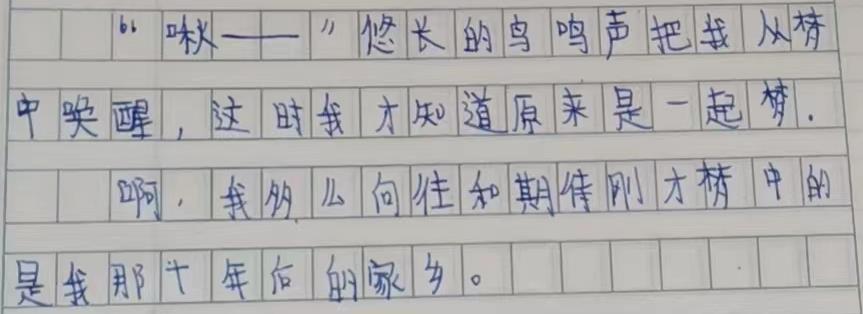 “啾——”悠长的鸟鸣声把我从梦
中唤醒,这时我才知道原来是一起梦.
啊,我多么向往和期待刚才梦中的
是我那十年后的家乡。